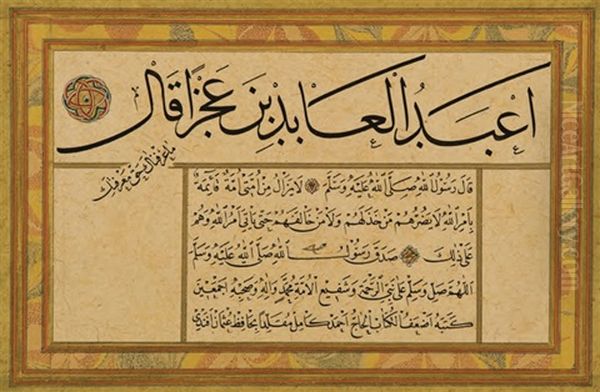 اعبد العابدين عجزا قال
ما عرفناك حق معرفتك
قال رسول الله صلى الله عليه وسلم لا يزال من امتى امة قائمة
بامر الله لا يضرهم من خذلهم ولا من خالفهم حتى ياتى امر الله وهم
على ذلك صدق رسول الله صلى الله عليه وسلم
اللهم صل وسلم على نبى الرحمة وشفيع الامة محمد واله وصحبه اجمعين
كتبه اضعف الكتاب الحاج احمد كامل مقلدا بحافظ عثمان افندى